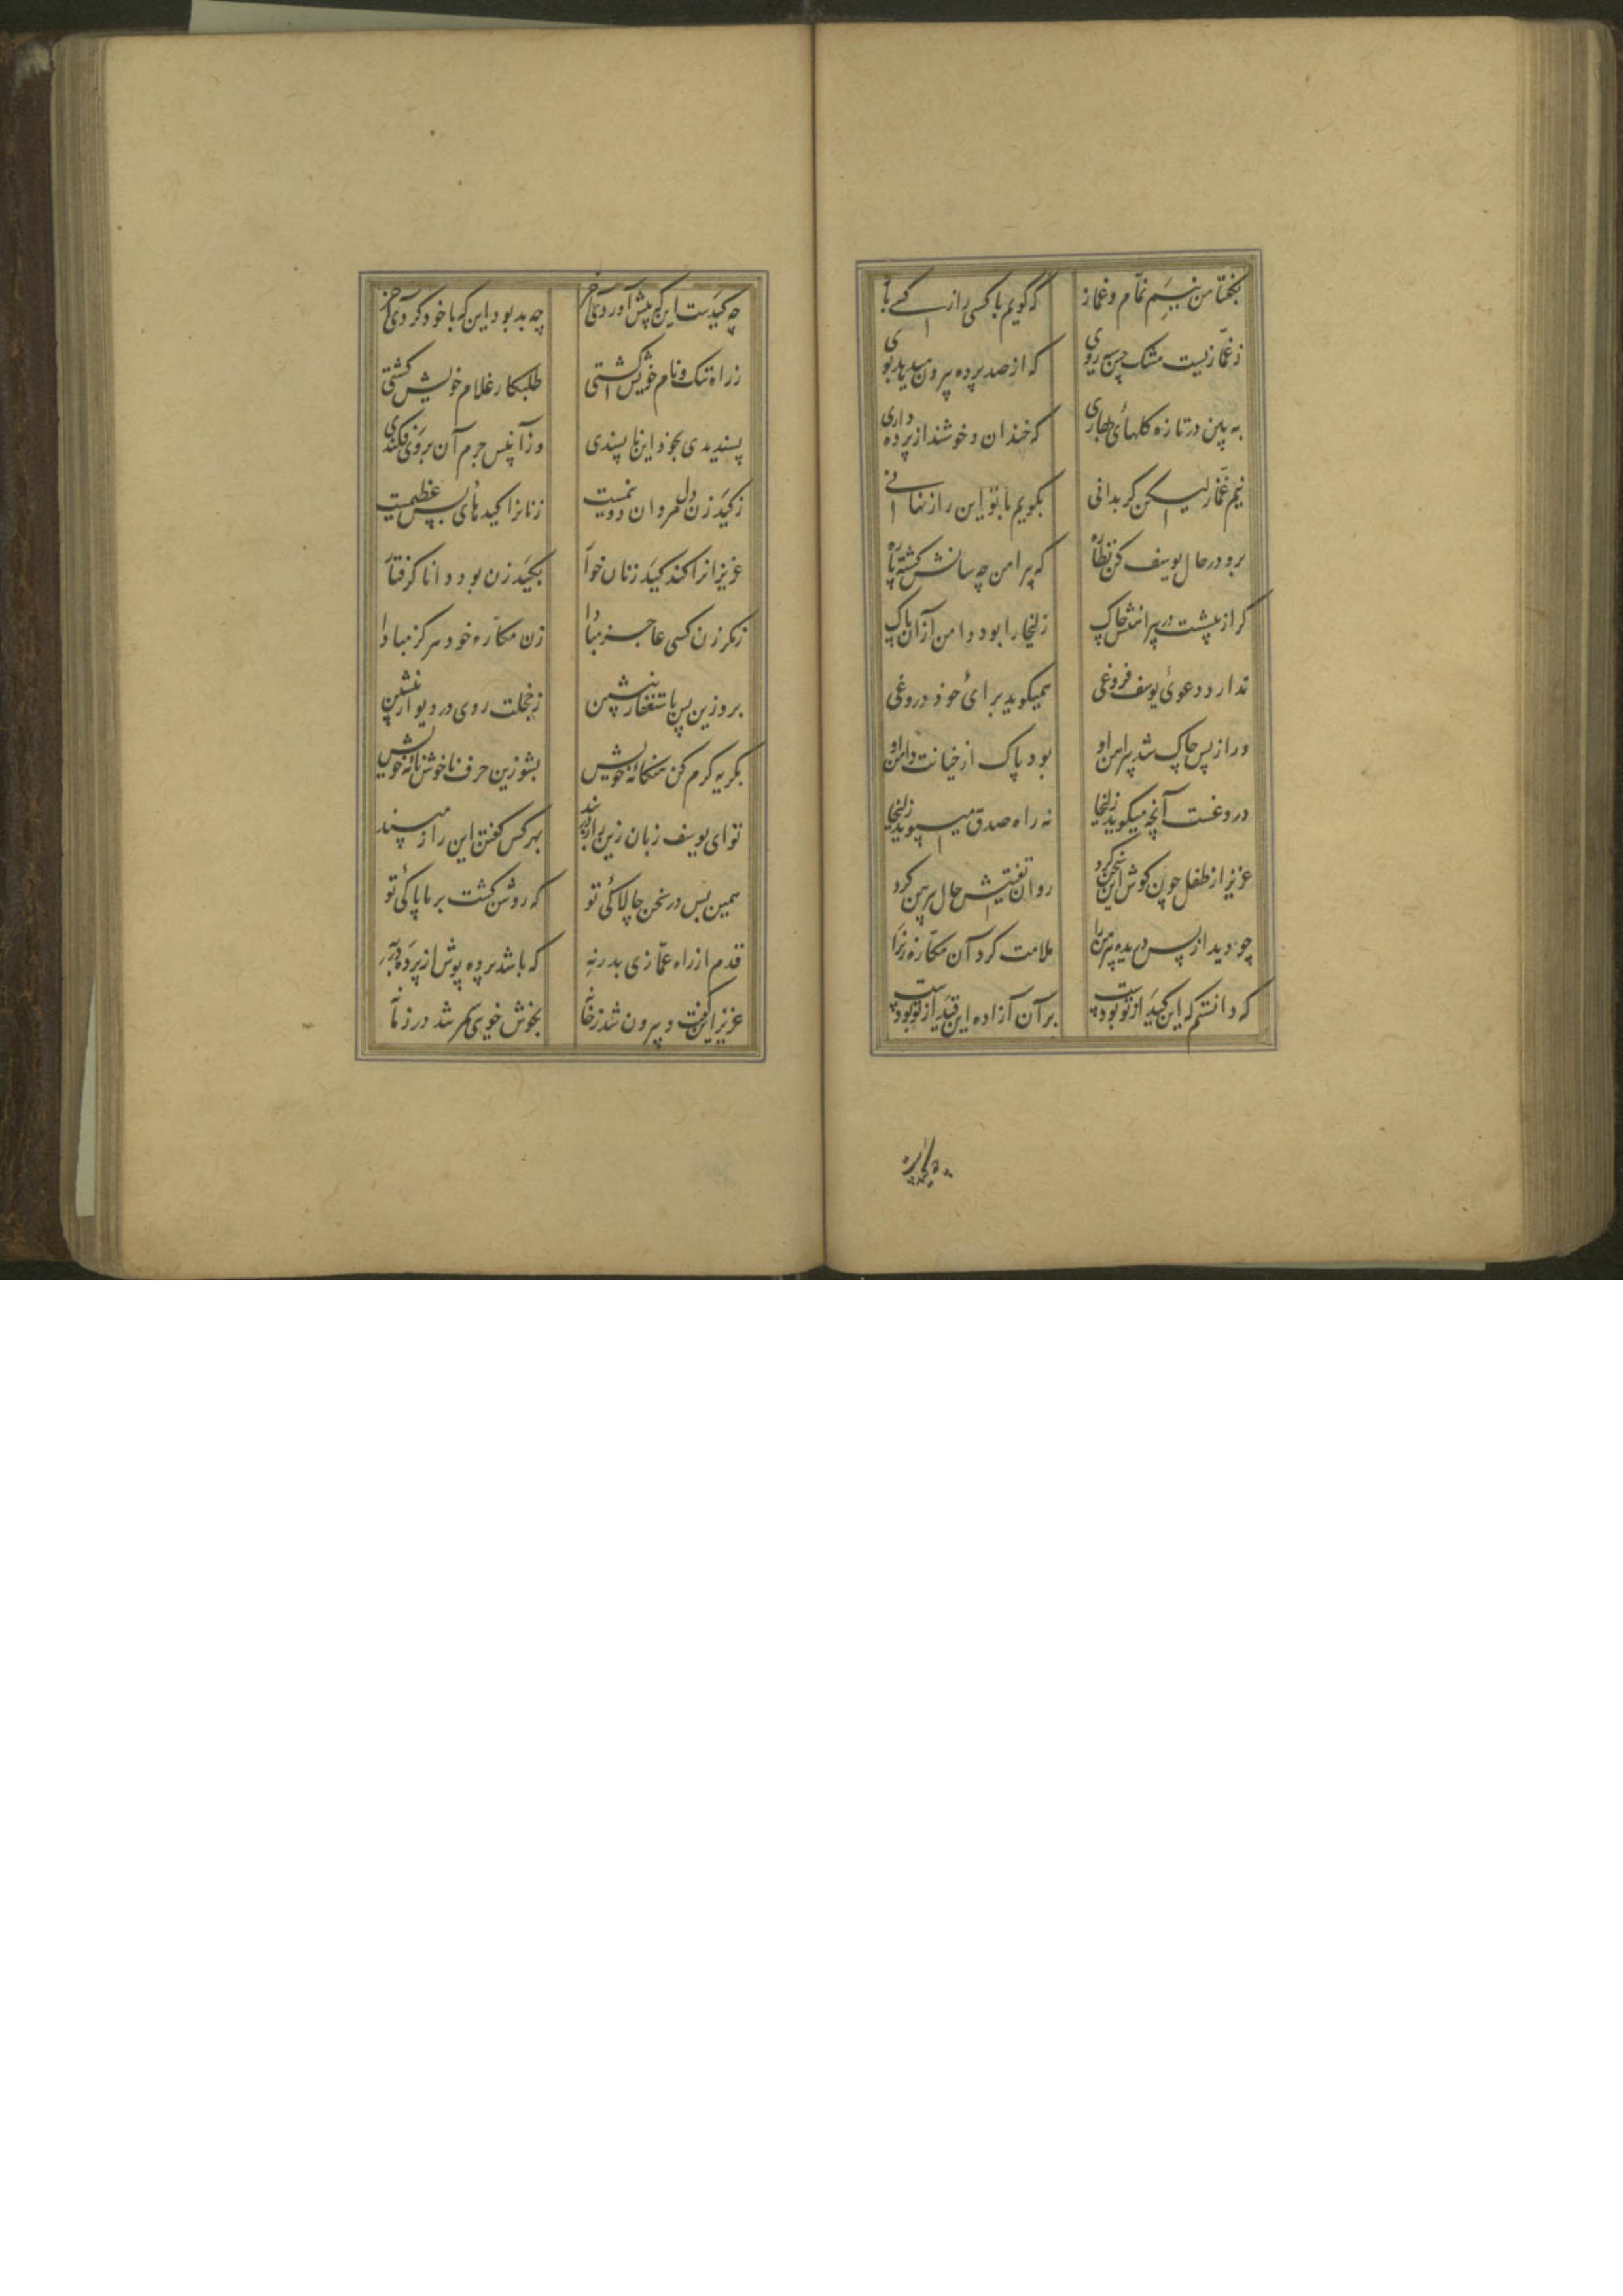 بگفتا من نیم نمام و غماز
که گویم با کسی راز کسی باز
ز غمازیست مشک چین سیه روی
که از صد پرده بیرون میدهد بوی
به بین در تازه گلهای بهاری
که خندان و خوشند از پرده داری
نیم غماز لیکن گر بدانی
بگویم با تو این راز نهانی
برو در حال یوسف کن نظاره
که پیراهن چه سانش گشته پاره
گر از پیشست در پیراهنش چاک
زلیخا را بود دامن از آن پاک
ندارد دعوی یوسف فروغی
همیگوید برای خود دروغی
ور از پس چاک شد پیراهن او
بود پاک از خیانت دامن او
دروغست آنچه میگوید زلیخا
نه راه صدق میپوید زلیخا
عزیز از طفل چون گوش این سخن کرد
روان تفتیش حال پیرهن کرد
چو دید از پس دریده پیرهن را
ملامت کرد آن مکاره زن را
که دانستم که این کید از تو بودست
بر آن آزاده این قید از تو بودست
چه کیدست این که پیش آوردی آخر
چه بد بود این که با خود کردی آخر
ز راه ننگ و نام خویش گشتی
طلبکار غلام خویش گشتی
پسندیدی بخود این ناپسندی
وز آن پس جرم آن بر وی فکندی
ز کید زن دل مردان دو نیمست
زنانرا کیدهای بس عظیمست
عزیزانرا کند کید زنان خوار
بکید زن بود دانا گرفتار
ز مکر زن کسی عاجز مبادا
زن مکاره خود هرگز مبادا
برو زین پس باستغفار بنشین
ز خجلت روی در دیوار بنشین
بگریه گرم کن هنگامه خویش
بشو زین حرف ناخوش نامه خویش
تو ای یوسف زبان زین راز دربند
بهر کس گفتن این راز مپسند
همین بس در سخن چالاکی تو
که روشن گشت بر ما پاکی تو
قدم از راه غمازی بدر نه
که باشد پرده پوش از پرده در به
عزیز این گفت و بیرون شد ز خانه
بخوش خویی سمر شد در زمانه